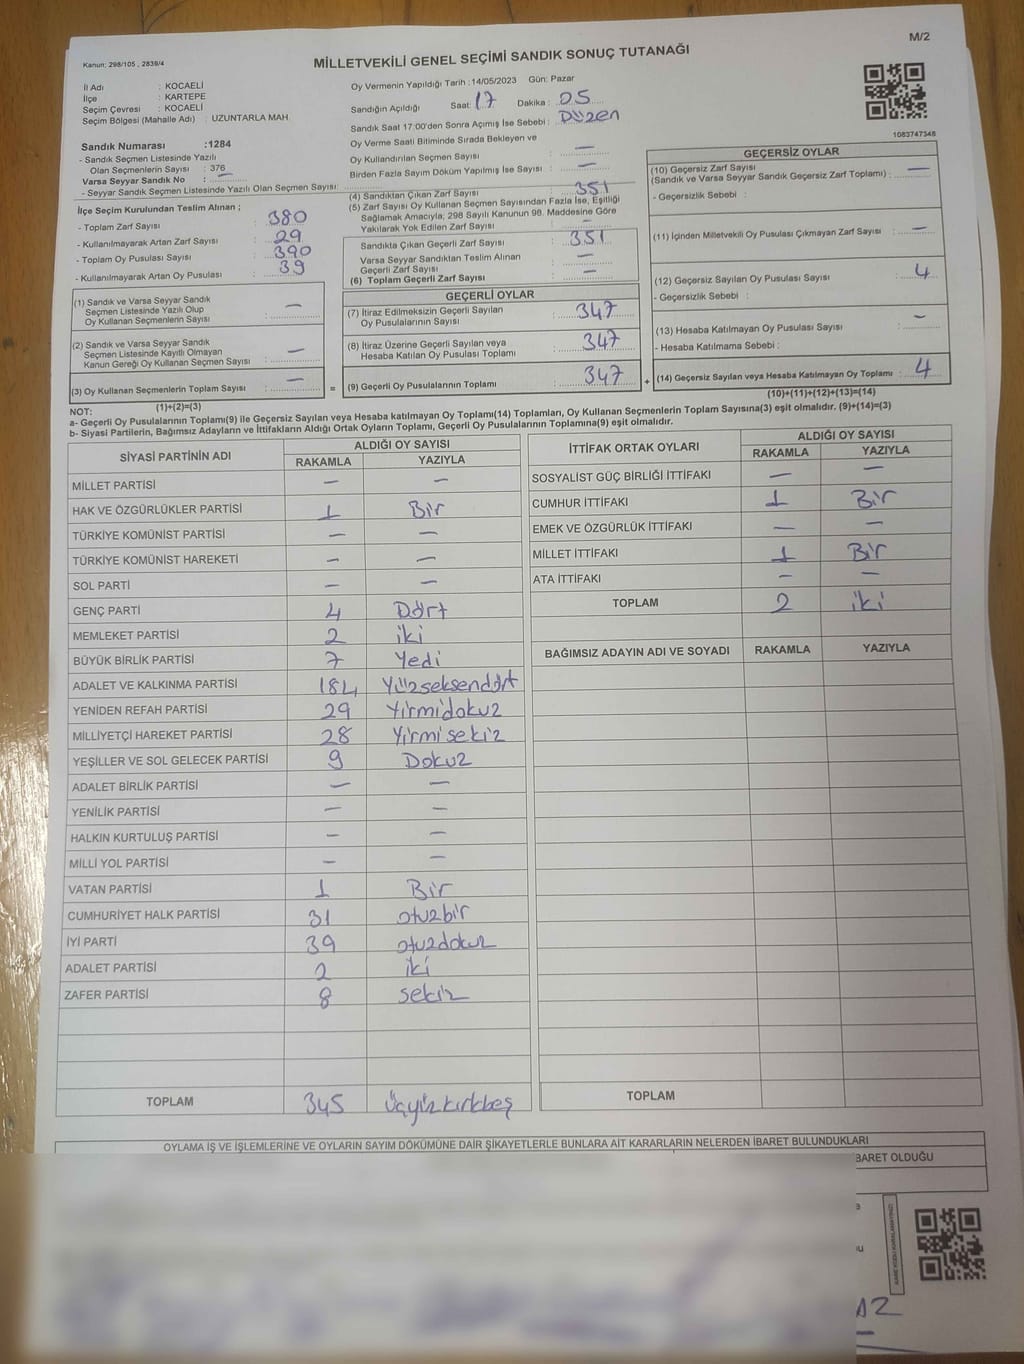 M/2
Kanun: 298/105 , 2839/4
MİLLETVEKİLİ GENEL SEÇİMİ SANDIK SONUÇ TUTANAĞI
İl Adı : KOCAELİ
İlçe : KARTEPE
Seçim Çevresi : KOCAELİ
Seçim Bölgesi (Mahalle Adı) : UZUNTARLA MAH.
Oy Vermenin Yapıldığı Tarih :14/05/2023 Gün: Pazar
Sandığın Açıldığı Saat: 17 Dakika : 05
Sandık Saat 17:00'den Sonra Açımış İse Sebebi : Düzen
Oy Verme Saati Bitiminde Sırada Bekleyen ve
Oy Kullandırılan Seçmen Sayısı : —
Birden Fazla Sayım Döküm Yapılmış İse Sayısı : —
1083747346
Sandık Numarası :1284
- Sandık Seçmen Listesinde Yazılı
Olan Seçmenlerin Sayısı : 376
Varsa Seyyar Sandık No : —
- Seyyar Sandık Seçmen Listesinde Yazılı Olan Seçmen Sayısı:
İlçe Seçim Kurulundan Teslim Alınan ;
- Toplam Zarf Sayısı : 380
- Kullanılmayarak Artan Zarf Sayısı : 29
- Toplam Oy Pusulası Sayısı : 390
- Kullanılmayarak Artan Oy Pusulası : 39
(1) Sandık ve Varsa Seyyar Sandık
Seçmen Listesinde Yazılı Olup
Oy Kullanan Seçmenlerin Sayısı : —
(2) Sandık ve Varsa Seyyar Sandık
Seçmen Listesinde Kayıtlı Olmayan
Kanun Gereği Oy Kullanan Seçmen Sayısı : —
(3) Oy Kullanan Seçmenlerin Toplam Sayısı : —
(1)+(2)=(3)
(4) Sandıktan Çıkan Zarf Sayısı : 351
(5) Zarf Sayısı Oy Kullanan Seçmen Sayısından Fazla İse, Eşitliği
Sağlamak Amacıyla; 298 Sayılı Kanunun 98. Maddesine Göre
Yakılarak Yok Edilen Zarf Sayısı :
Sandıkta Çıkan Geçerli Zarf Sayısı : 351
Varsa Seyyar Sandıktan Teslim Alınan
Geçerli Zarf Sayısı : —
(6) Toplam Geçerli Zarf Sayısı : —
GEÇERLİ OYLAR
(7) İtiraz Edilmeksizin Geçerli Sayılan
Oy Pusulalarının Sayısı : 347
(8) İtiraz Üzerine Geçerli Sayılan veya
Hesaba Katılan Oy Pusulası Toplamı : 347
= (9) Geçerli Oy Pusulalarının Toplamı : 347 +
GEÇERSİZ OYLAR
(10) Geçersiz Zarf Sayısı
(Sandık ve Varsa Seyyar Sandık Geçersiz Zarf Toplamı) : —
- Geçersizlik Sebebi :
(11) İçinden Milletvekili Oy Pusulası Çıkmayan Zarf Sayısı : —
(12) Geçersiz Sayılan Oy Pusulası Sayısı : 4
- Geçersizlik Sebebi :
(13) Hesaba Katılmayan Oy Pusulası Sayısı : —
- Hesaba Katılmama Sebebi :
(14) Geçersiz Sayılan veya Hesaba Katılmayan Oy Toplamı : 4
(10)+(11)+(12)+(13)=(14)
NOT:
a- Geçerli Oy Pusulasının Toplamı(9) ile Geçersiz Sayılan veya Hesaba katılmayan Oy Toplamı(14) Toplamları, Oy Kullanan Seçmenlerin Toplam Sayısına(3) eşit olmalıdır. (9)+(14)=(3)
b- Siyasi Partilerin, Bağımsız Adayların ve İttifakların Aldığı Ortak Oyların Toplamı, Geçerli Oy Pusulalarının Toplamına(9) eşit olmalıdır.
SİYASİ PARTİNİN ADI ALDIĞI OY SAYISI
RAKAMLA YAZIYLA
MİLLET PARTİSİ — —
HAK VE ÖZGÜRLÜKLER PARTİSİ 1 Bir
TÜRKİYE KOMÜNİST PARTİSİ — —
TÜRKİYE KOMÜNİST HAREKETİ — —
SOL PARTİ — —
GENÇ PARTİ 4 Dört
MEMLEKET PARTİSİ 2 iki
BÜYÜK BİRLİK PARTİSİ 7 Yedi
ADALET VE KALKINMA PARTİSİ 184 Yüzseksendört
YENİDEN REFAH PARTİSİ 29 Yirmidokuz
MİLLİYETÇİ HAREKET PARTİSİ 28 Yirmisekiz
YEŞİLLER VE SOL GELECEK PARTİSİ 9 Dokuz
ADALET BİRLİK PARTİSİ — —
YENİLİK PARTİSİ — —
HALKIN KURTULUŞ PARTİSİ — —
MİLLİ YOL PARTİSİ — —
VATAN PARTİSİ 1 Bir
CUMHURİYET HALK PARTİSİ 31 otuzbir
İYİ PARTİ 39 otuzdokuz
ADALET PARTİSİ 2 iki
ZAFER PARTİSİ 8 sekiz
TOPLAM 345 Üçyüzkırkbeş
İTTİFAK ORTAK OYLARI ALDIĞI OY SAYISI
RAKAMLA YAZIYLA
SOSYALİST GÜÇ BİRLİĞİ İTTİFAKI — —
CUMHUR İTTİFAKI 1 Bir
EMEK VE ÖZGÜRLÜK İTTİFAKI — —
MİLLET İTTİFAKI 1 Bir
ATA İTTİFAKI — —
TOPLAM 2 iki
BAĞIMSIZ ADAYIN ADI VE SOYADI RAKAMLA YAZIYLA
TOPLAM
OYLAMA İŞ VE İŞLEMLERİNE VE OYLARIN SAYIM DÖKÜMÜNE DAİR ŞİKAYETLERLE BUNLARA AİT KARARLARIN NELERDEN İBARET BULUNDUKLARI
BARET OLDUĞU